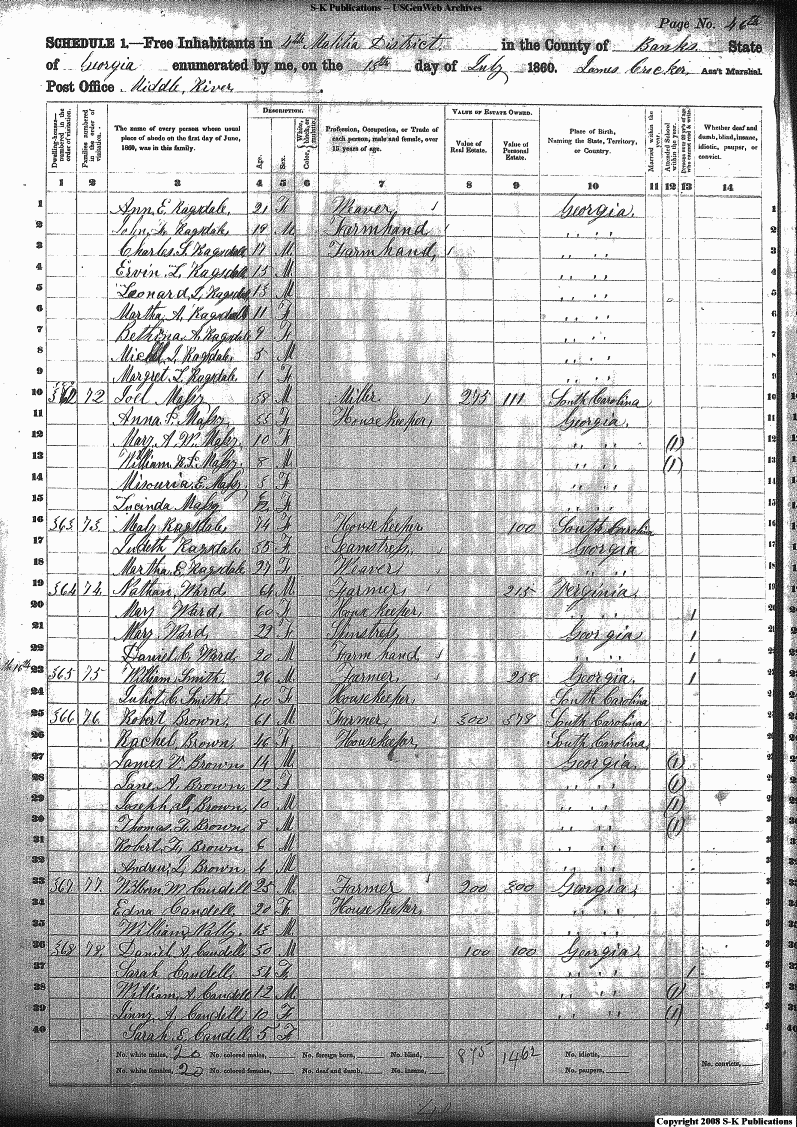 S-K Publications – USGenWeb Archives
Page No. 46th
SCHEDULE 1.—Free Inhabitants in 4th Malitia District in the County of Banks State
of Georgia enumerated by me, on the 15th day of July 1860. James Crocker, Ass't Marshal.
Post Office Middle River
DESCRIPTION. VALUE OF ESTATE OWNED.
Dwelling-houses—numbered in the order of visitation. Families numbered in the order of visitation. The name of every person whose usual place of abode on the first day of June, 1860, was in this family. Age. Sex. Color, White, black, or mulatto. Profession, Occupation, or Trade of each person, male and female, over 15 years of age. Value of Real Estate. Value of Personal Estate. Place of Birth, Naming the State, Territory, or Country. Married within the year. Attended School within the year. Persons over 20 y'rs of age who cannot read & write. Whether deaf and dumb, blind, insane, idiotic, pauper, or convict.
1 2 3 4 5 6 7 8 9 10 11 12 13 14
1 Ann E. Ragsdale, 21 F Weaver Georgia 1
2 John Ragsdale, 19 M Farmhand " "
3 Charles S. Ragsdale 17 M Farmhand, " "
4 Ervin L. Ragsdale 15 M " "
5 Leonard J. Ragsdale 13 M " "
6 Martha A. Ragsdale 11 F " "
7 Bethena A. Ragsdale 9 F " "
8 Ragsdale, 5 M " "
9 Margret L. Ragsdale, 1 F " "
10 362 72 Joel 58 M Miller 275 111 South Carolina
11 Anna P. 55 F House Keeper, Georgia,
12 Mary A. W. 10 F " " (1)
13 William R. 8 M " " (1)
14 Misouria E. 5 F " "
15 Lucinda F " "
16 363 73 Ragsdale, 74 F Housekeeper 100 South Carolina
17 Judeth Ragsdale 55 F Seamstress, Georgia
18 Martha E. Ragsdale 27 F Weaver " "
19 364 74 Nathan Ward 61 M Farmer 215 Verginia
20 Mary Ward 60 F House Keeper, " " 1
21 Mary Ward, 22 F Georgia 1
22 Daniel C. Ward 20 M Farm hand " " 1
23 365 75 William Smith 26 M Farmer, 258 Georgia, 1
24 Smith 40 F Housekeeper, South Carolina
25 366 76 Robert Brown 61 M Farmer 300 578 South Carolina
26 Rachel Brown, 46 F Housekeeper, South Carolina
27 James Brown 14 M Georgia (1)
28 Jane A. Brown 12 F " " (1)
29 Joseph Brown, 10 M " " (1)
30 Thomas Brown 8 M " " (1)
31 Robert Brown, 6 M " "
32 Andrew J. Brown, 4 M " "
33 367 77 Wilborn M. Caudell 25 M Farmer 200 300 Georgia
34 Edna Caudell 20 F Housekeeper, " "
35 William 15 M " "
36 368 78 Daniel A. Caudell 50 M 100 100 Georgia
37 Sarah Caudell 54 F " " 1
38 William A. Caudell 12 M " " (1)
39 A. Caudell 10 F " " (1)
40 Sarah E. Caudell 5 F
No. white males, 20 No. colored males, No. foreign born, No. blind, 875 1462 No. idiotic,
No. white females, 20 No. colored females, No. deaf and dumb, No. insane, No. paupers, No. convicts,
Copyright 2008 S-K Publications